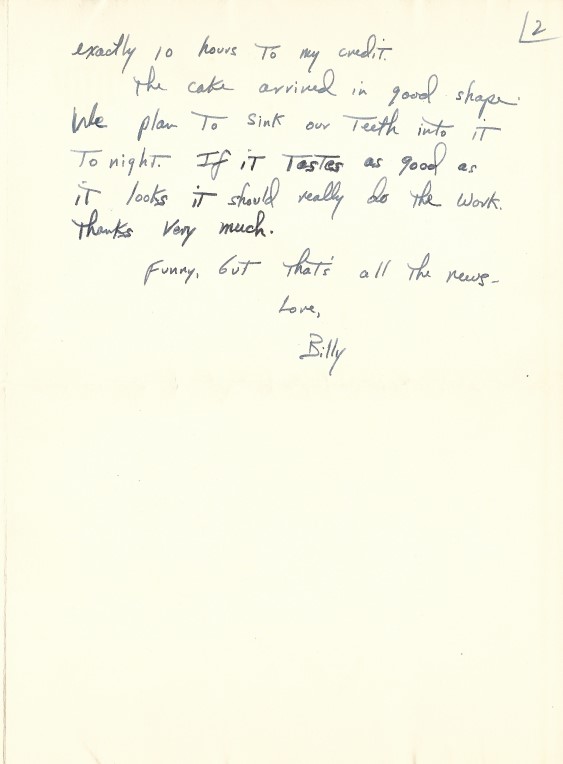 2
exactly 10 hours To my credit.
The cake arrived in good shape.
We plan To sink our Teeth into it
To night. If it Tastes as good as
it looks it should really do the work.
Thanks Very much.
Funny, but that's all the news-
Love,
Billy